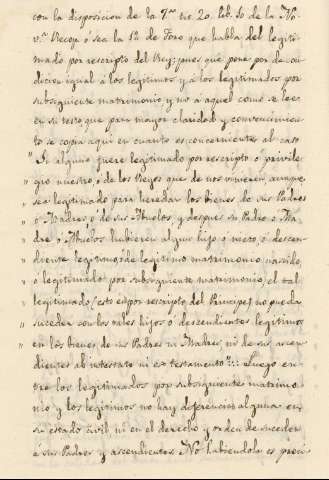 con la disposicion de la 7.ª tit. 20. lib. 10 de la No-
v.ª Recop. ó sea la 12 de Toro que habla del legiti-
mado por rescripto del Rey; pues que pone por de con-
dicion igual á los legitimos y á los legitimados por
subsiguiente matrimonio y no a aquel como se lee
en su testo, que para mayor claridad y convencimien-
to se copia aqui en cuanto es concerniente al caso
"Si alguno fuere legitimado por rescripto ó privile-
" gio nuestro, ó de los Reyes que de nos vinieren, aunque
" sea legitimado para heredar los bienes de sus Padres
" ó Madres, ó de sus Abuelos, y despues su Padre ó Ma-
" dre ó Abuelos hubieren algun hijo ó nieto ó descen-
" diente legitimo, ó de legitimo matrimonio nascido,
" ó legitimado por subsiguiente matrimonio, el tal
" legitimado (esto es por rescripto del Principe) no pueda
" suceder con los tales hijos ó descendientes legitimos
" en los bienes de sus Padres ni Madres, ni de sus ascen-
dientes ab intestato ni ex testamento": Luego en-
tre los legitimados por subsiguiente matrimo-
nio y los legitimos no hay diferencia alguna en
su estado civil ni en el derecho y orden de suceder
á sus Padres y ascendientes. No habiendola es preci